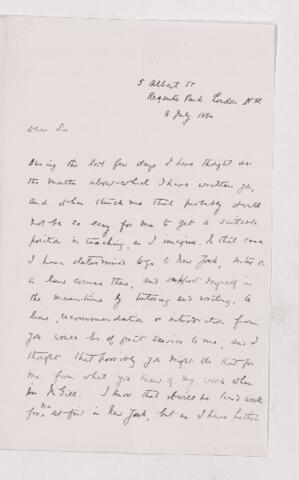 5 Albert St
Regents Park London N.W.
8 July 18
Dear Sir
During the last few days I have thought over
the matter about which I have written you,
and it has struck me that probably it will
not be so easy for me to get a suitable
position in teaching, as I imagine. In that case
I have determined to go to New York, enter on
a law course there, and support myself in
the meantime by tutoring and writing. A
line, recommendation or introduction from
you would be of great service to me, and I
thought that possibly you might do that for
me from what you knew of my work when
in McGill. I know that it will be hard work
for me at first in New York, but as I have